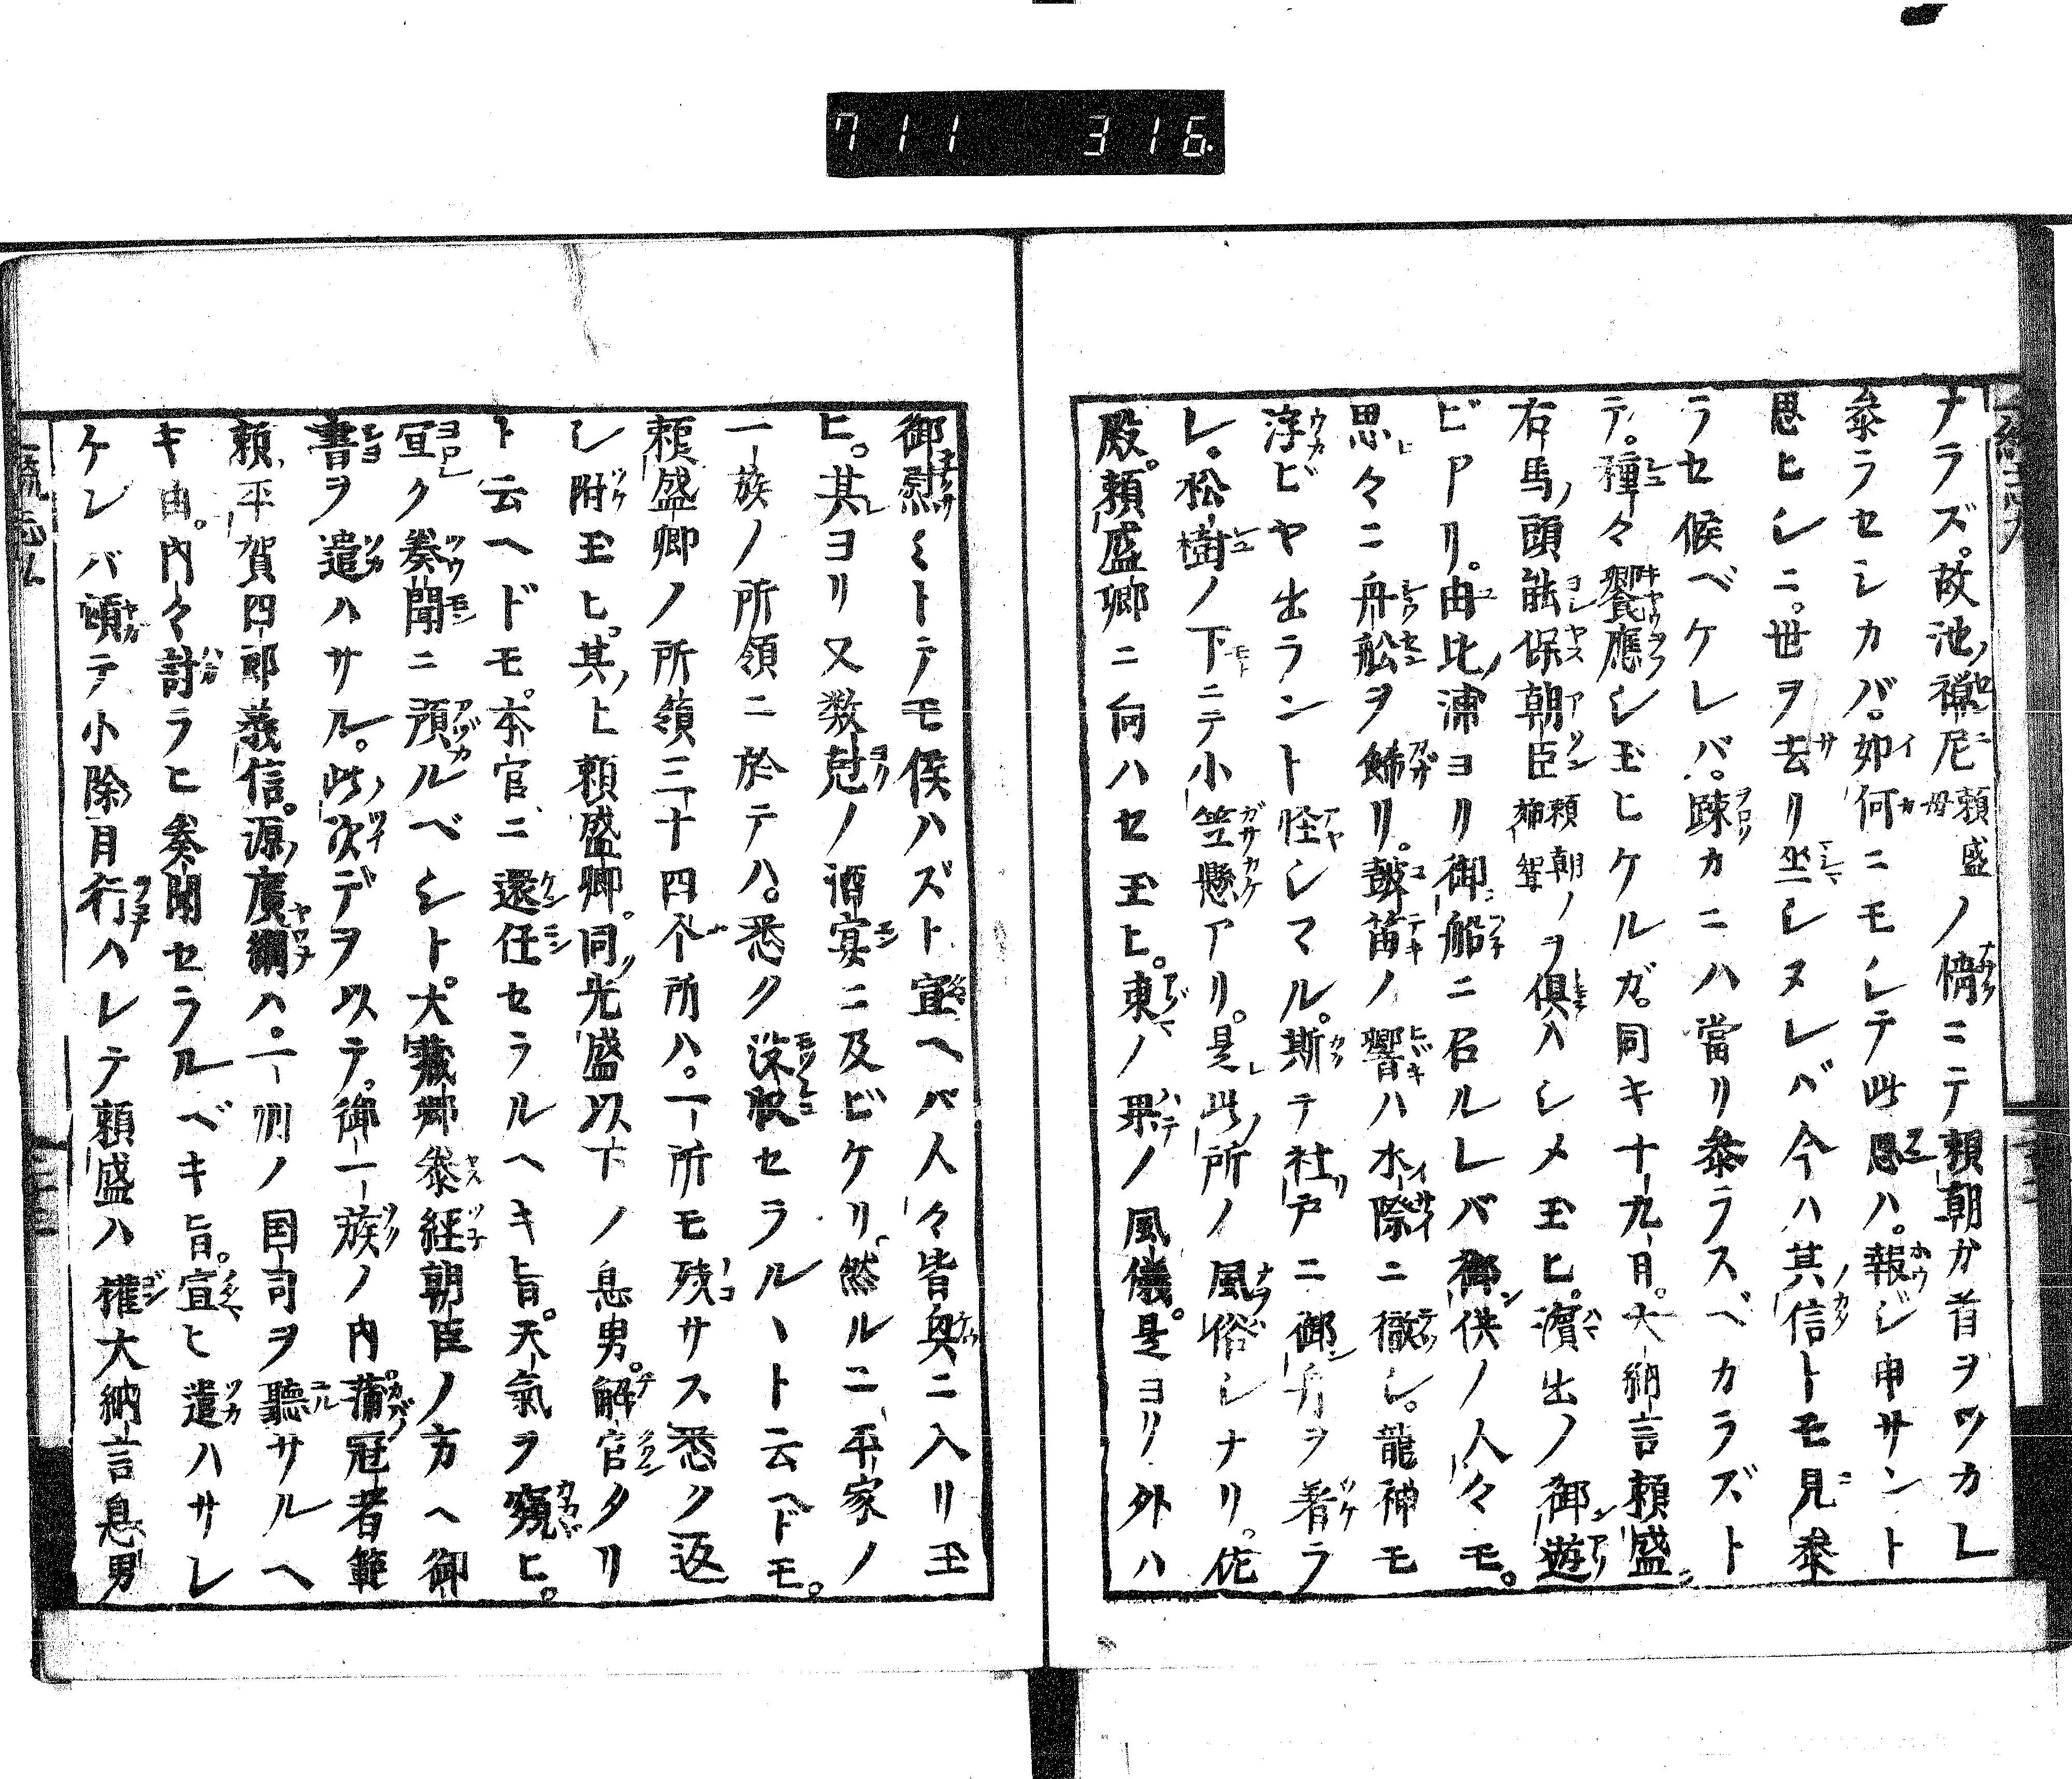 711 316
ナラズ。故池ノ禅尼頼盛ノ母ノ情ニテ頼朝カ首ヲツカレ
参ラセシカバ。如何ニモシテ此恩ハ。報ジ申サント
思ヒシニ。世ヲ去リ坐シヌレバ今ハ其信トモ見参
ラセ候ベケレバ。踈カニハ當リ参ラスベカラズト
テ。種々饗應シ玉ヒケルガ。同キ十九日。大納言頼盛
右馬ノ頭能保朝臣頼朝ノ姉聟ヲ倶ハシメ玉ヒ。濱出ノ御遊
ビアリ。由比ノ浦ヨリ御船ニ召ルレバ御供ノ人々モ。
思々ニ舟舩ヲ餝リ。鼓笛ノ響ハ水際ニ徹シ。龍神モ
浮ビヤ出ラント怪シマル。斯テ社戸ニ御舟ヲ着ラ
レ。松樹ノ下ニテ小笠懸アリ。是レ此所ノ風俗シナリ。佐
殿。頼盛卿ニ向ハセ玉ヒ。東ノ果ノ風儀。是ヨリ外ハ
御慰ミトテモ候ハズト宣ヘバ人々皆興ニ入リ玉
ヒ。其レヨリ又数剋ノ酒宴ニ及ビケリ。然ルニ平家ノ
一族ノ所領ニ於テハ。悉ク没収セラルヽト云ヘドモ。
頼盛卿ノ所領三十四个所ハ。一所モ残サス悉ク返
シ附玉ヒ。其ノ上頼盛卿。同ク光盛以下ノ息男。解官タリ
ト云ヘドモ。本官ニ還任セラルヘキ旨。天氣ヲ窺ヒ。
宜ク奏聞ニ預ルベシト。大蔵卿泰経朝臣ノ方ヘ御
書ヲ遣ハサル。此ノ次デヲ以テ。御一族ノ内。蒲冠者範
頼。平賀四郎義信。源廣綱ハ。一州ノ国司ヲ聴サルヘ
キ由。内々討ラヒ奏聞セラルベキ旨。宣ヒ遣ハサレ
ケレバ頓テ小除目行ハレテ頼盛ハ權大納言息男